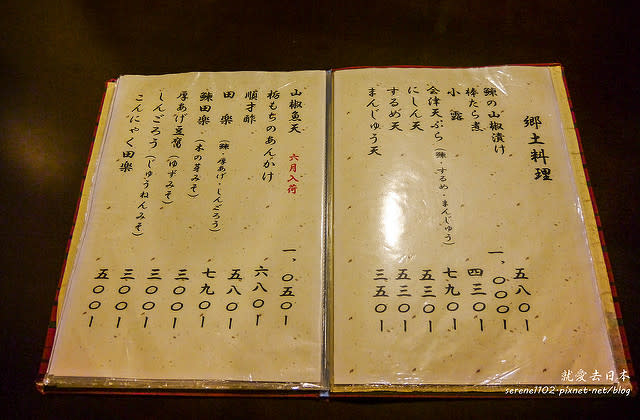 郷土料理
鰊の山椒漬け 五八〇ー
棒たら煮 一、〇〇〇ー
小露 四三〇ー
会津天ぷら（鰊・するめ・まんじゅう） 七九〇ー
にしん天 五三〇ー
するめ天 五三〇ー
まんじゅう天 三五〇ー
山椒魚天 六月入荷 一、〇五〇ー
栃もちのあんかけ 六八〇ー
順才酢 五八〇ー
田楽（鰊・厚あげ・しんごろう） 七九〇ー
鰊田楽（木の芽みそ） 三〇〇ー
厚あげ豆富（ゆずみそ） 三〇〇ー
しんごろう（じゅうねんみそ） 三〇〇ー
こんにゃく田楽 五〇〇ー
就愛去日本
serene1102.pixnet.net/blog